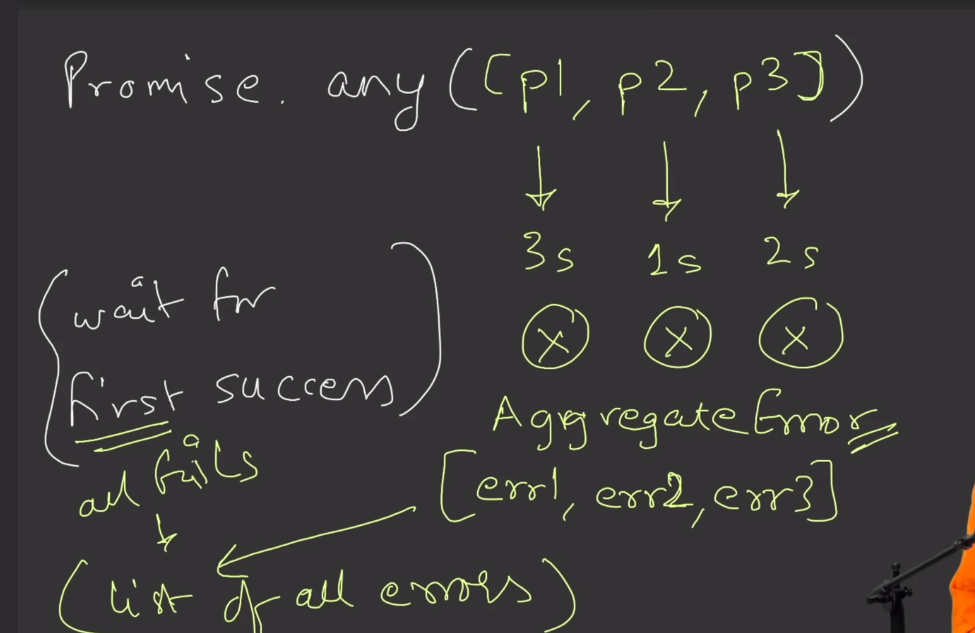 Promise. any([p1, p2, p3])
3s 1s 2s
X X X
(wait for
first success)
AggregateError
[err1, err2, err3]
all fails
(list of all errors)